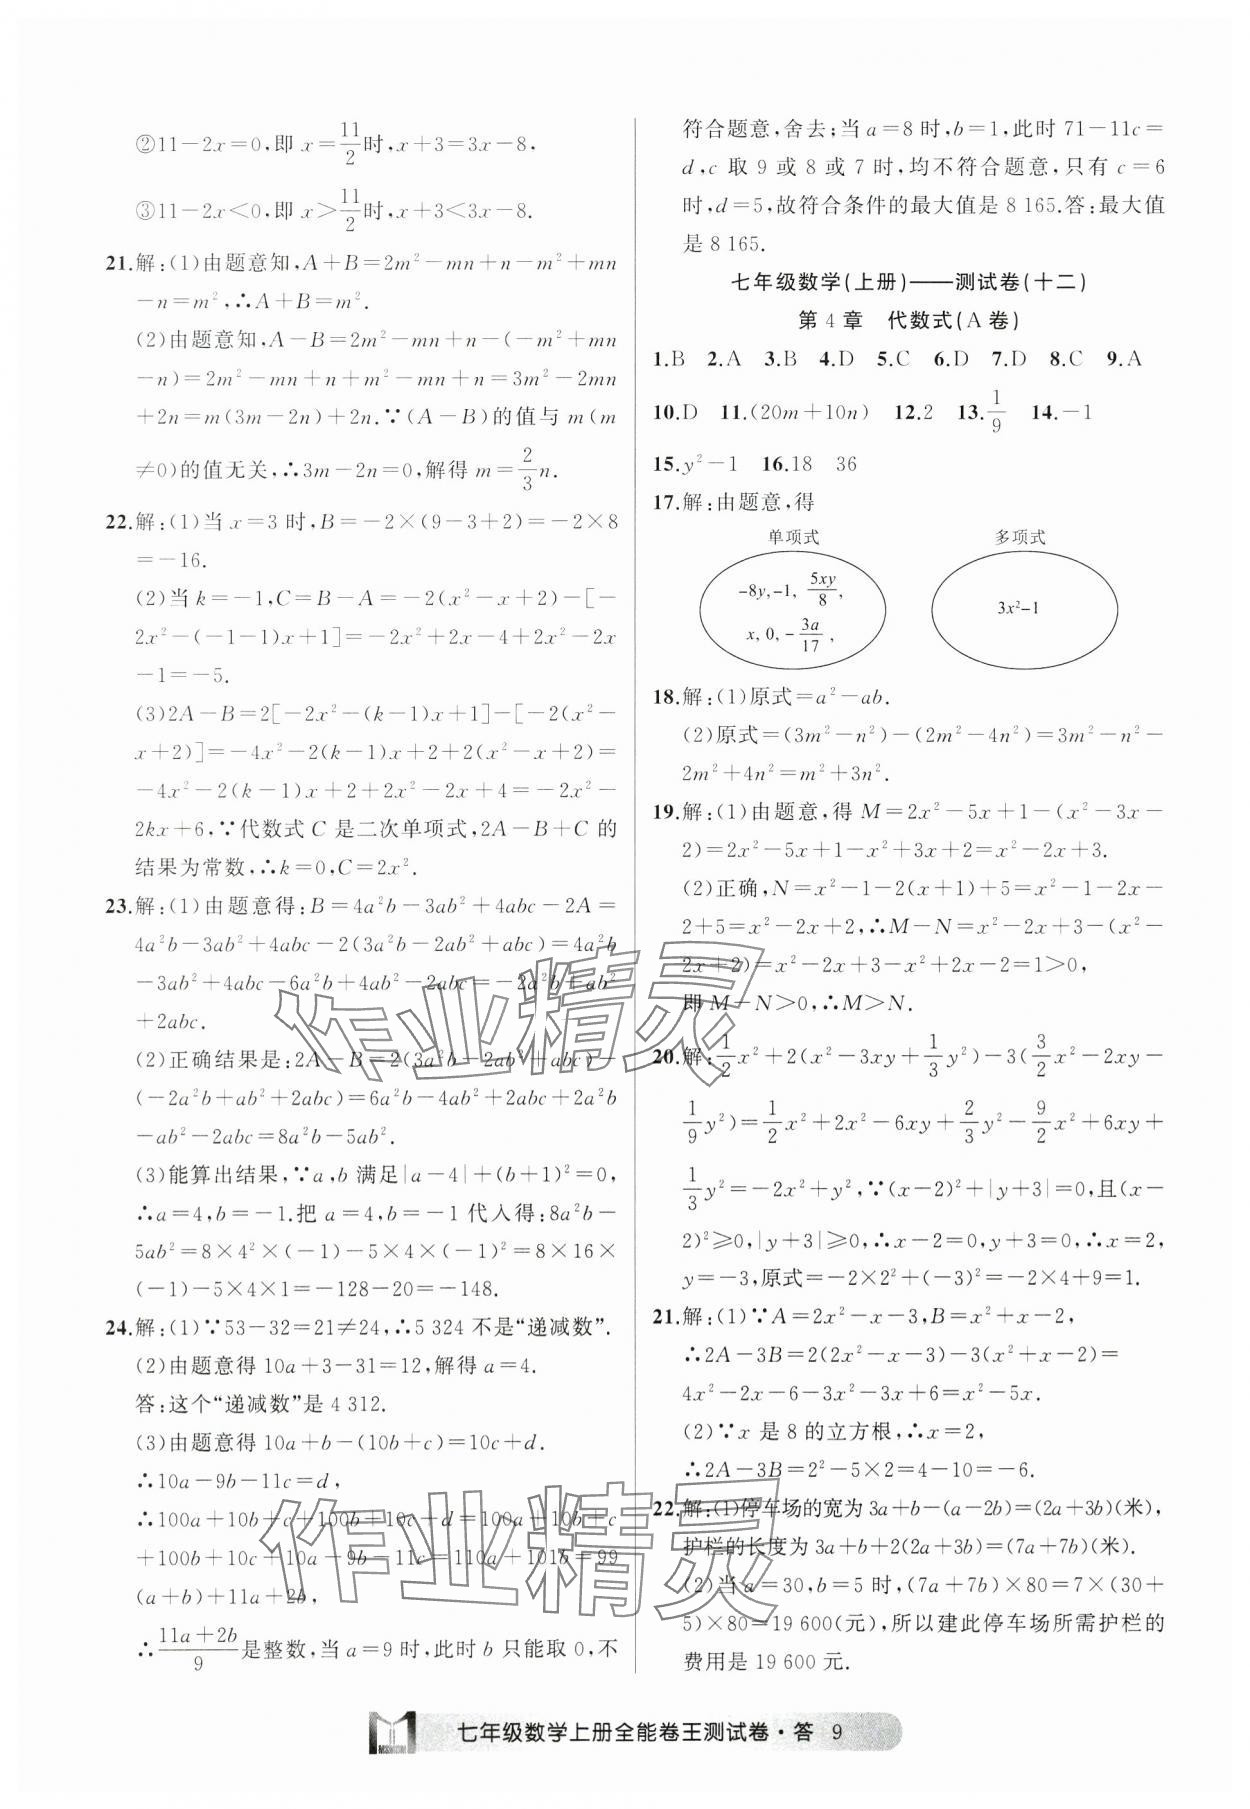 ②11－2x＝0，即 x＝11/2时，x＋3＝3x－8．
③11－2x＜0，即 x＞11/2时，x＋3＜3x－8．
21.解：(1)由题意知，A＋B＝2m²－mn＋n－m²＋mn
－n＝m²，∴A＋B＝m²．
(2)由题意知，A－B＝2m²－mn＋n－(－m²＋mn
－n)＝2m²－mn＋n＋m²－mn＋n＝3m²－2mn
＋2n＝m(3m－2n)＋2n．∵(A－B)的值与 m(m
≠0)的值无关，∴3m－2n＝0，解得 m＝2/3n．
22.解：(1)当 x＝3 时，B＝－2×(9－3＋2)＝－2×8
＝－16．
(2)当 k＝－1，C＝B－A＝－2(x²－x＋2)－[－
2x²－(－1－1)x＋1]＝－2x²＋2x－4＋2x²－2x
－1＝－5．
(3)2A－B＝2[－2x²－(k－1)x＋1]－[－2(x²－
x＋2)]＝－4x²－2(k－1)x＋2＋2(x²－x＋2)＝
－4x²－2(k－1)x＋2＋2x²－2x＋4＝－2x²－
2kx＋6，∵代数式 C 是二次单项式，2A－B＋C 的
结果为常数，∴k＝0，C＝2x²．
23.解：(1)由题意得：B＝4a²b－3ab²＋4abc－2A＝
4a²b－3ab²＋4abc－2(3a²b－2ab²＋abc)＝4a²b
－3ab²＋4abc－6a²b＋4ab²－2abc＝－2a²b＋ab²
＋2abc．
(2)正确结果是：2A－B＝2(3a²b－2ab²＋abc)－
(－2a²b＋ab²＋2abc)＝6a²b－4ab²＋2abc＋2a²b
－ab²－2abc＝8a²b－5ab²．
(3)能算出结果，∵a，b 满足|a－4|＋(b＋1)²＝0，
∴a＝4，b＝－1．把 a＝4，b＝－1 代入得：8a²b－
5ab²＝8×4²×(－1)－5×4×(－1)²＝8×16×
(－1)－5×4×1＝－128－20＝－148．
24.解：(1)∵53－32＝21≠24，∴5 324 不是“递减数”．
(2)由题意得 10a＋3－31＝12，解得 a＝4．
答：这个“递减数”是 4 312．
(3)由题意得 10a＋b－(10b＋c)＝10c＋d．
∴10a－9b－11c＝d，
∴100a＋10b＋c＋100b＋10c＋d＝100a＋10b＋c
＋100b＋10c＋10a－9b－11c＝110a＋101b＝99
(a＋b)＋11a＋2b，
∴(11a＋2b)/9是整数，当 a＝9 时，此时 b 只能取 0，不
符合题意，舍去；当 a＝8 时，b＝1，此时 71－11c＝
d，c 取 9 或 8 或 7 时，均不符合题意，只有 c＝6
时，d＝5，故符合条件的最大值是 8 165．答：最大值
是 8 165．
七年级数学(上册)——测试卷(十二)
第 4 章　代数式(A 卷)
1.B　2.A　3.B　4.D　5.C　6.D　7.D　8.C　9.A
10.D　11.(20m＋10n)　12.2　13.1/9　14.－1
15.y²－1　16.18　36
17.解：由题意，得
单项式　多项式
-8y,-1, 5xy/8,
x, 0, -3a/17 ,
3x²-1
18.解：(1)原式＝a²－ab．
(2)原式＝(3m²－n²)－(2m²－4n²)＝3m²－n²－
2m²＋4n²＝m²＋3n²．
19.解：(1)由题意，得 M＝2x²－5x＋1－(x²－3x－
2)＝2x²－5x＋1－x²＋3x＋2＝x²－2x＋3．
(2)正确，N＝x²－1－2(x＋1)＋5＝x²－1－2x－
2＋5＝x²－2x＋2，∴M－N＝x²－2x＋3－(x²－
2x＋2)＝x²－2x＋3－x²＋2x－2＝1＞0，
即 M－N＞0，∴M＞N．
20.解：1/2x²＋2(x²－3xy＋1/3y²)－3(3/2x²－2xy－
1/9y²)＝1/2x²＋2x²－6xy＋2/3y²－9/2x²＋6xy＋
1/3y²＝－2x²＋y²，∵(x－2)²＋|y＋3|＝0，且(x－
2)²≥0，|y＋3|≥0，∴x－2＝0，y＋3＝0，∴x＝2，
y＝－3，原式＝－2×2²＋(－3)²＝－2×4＋9＝1．
21.解：(1)∵A＝2x²－x－3，B＝x²＋x－2，
∴2A－3B＝2(2x²－x－3)－3(x²＋x－2)＝
4x²－2x－6－3x²－3x＋6＝x²－5x．
(2)∵x 是 8 的立方根，∴x＝2，
∴2A－3B＝2²－5×2＝4－10＝－6．
22.解：(1)停车场的宽为 3a＋b－(a－2b)＝(2a＋3b)(米)，
护栏的长度为 3a＋b＋2(2a＋3b)＝(7a＋7b)(米)．
(2)当 a＝30，b＝5 时，(7a＋7b)×80＝7×(30＋
5)×80＝19 600(元)，所以建此停车场所需护栏的
费用是 19 600 元．
作业精灵
作业精灵
七年级数学上册全能卷王测试卷·答　9